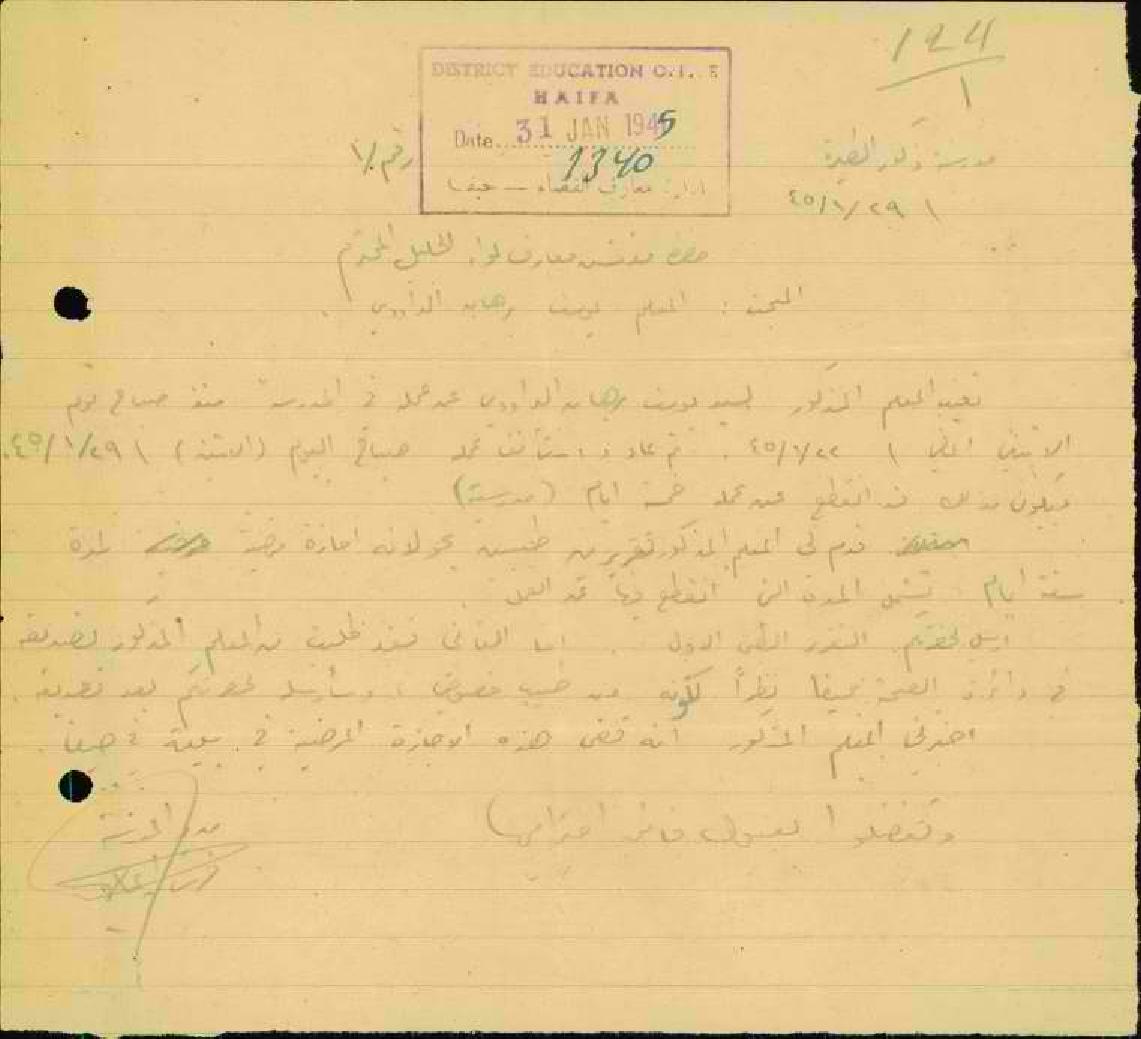 124
1
DISTRICT EDUCATION O.I. E
HAIFA
Date 31 JAN 1945
1340
ادارة معارف القضاء — حيفا
رقم /١
مدرسة ذكور الطيرة
٤٥/١/٢٩
حضرة مفتش معارف لواء الجليل المحترم
المبحث : المعلم يوسف برهان الداودي .
تغيب المعلم المذكور السيد يوسف برهان الداودي عن عمله في المدرسة منذ صباح يوم
الاثنين ٤٥/١/٢٢ . ثم عاد و استأنف عمله صباح اليوم (الاثنين) ٤٥/١/٢٩.
ويكون بذلك قد انقطع عن عمله خمسة ايام (مدرسية)
قدم لي المعلم المذكور تقريرين طبيين يخولانه اجازة مرضية لمدة
ستة ايام تشمل المدة التي انقطع فيها عن العمل .
ارسل لحضرتكم التقرير الطبي الاول . اما الثاني فقد طلبت من المعلم المذكور تصديقه
في دائرة الصحة بحيفا نظراً لكونه من طبيب خصوصي ، وسأرسله لحضرتكم بعد تصديقه .
اخبرني المعلم المذكور انه قضى هذه الاجازة المرضية في بيته في حيفا .
وتفضلوا بقبول فائق احترامي
مدير المدرسة